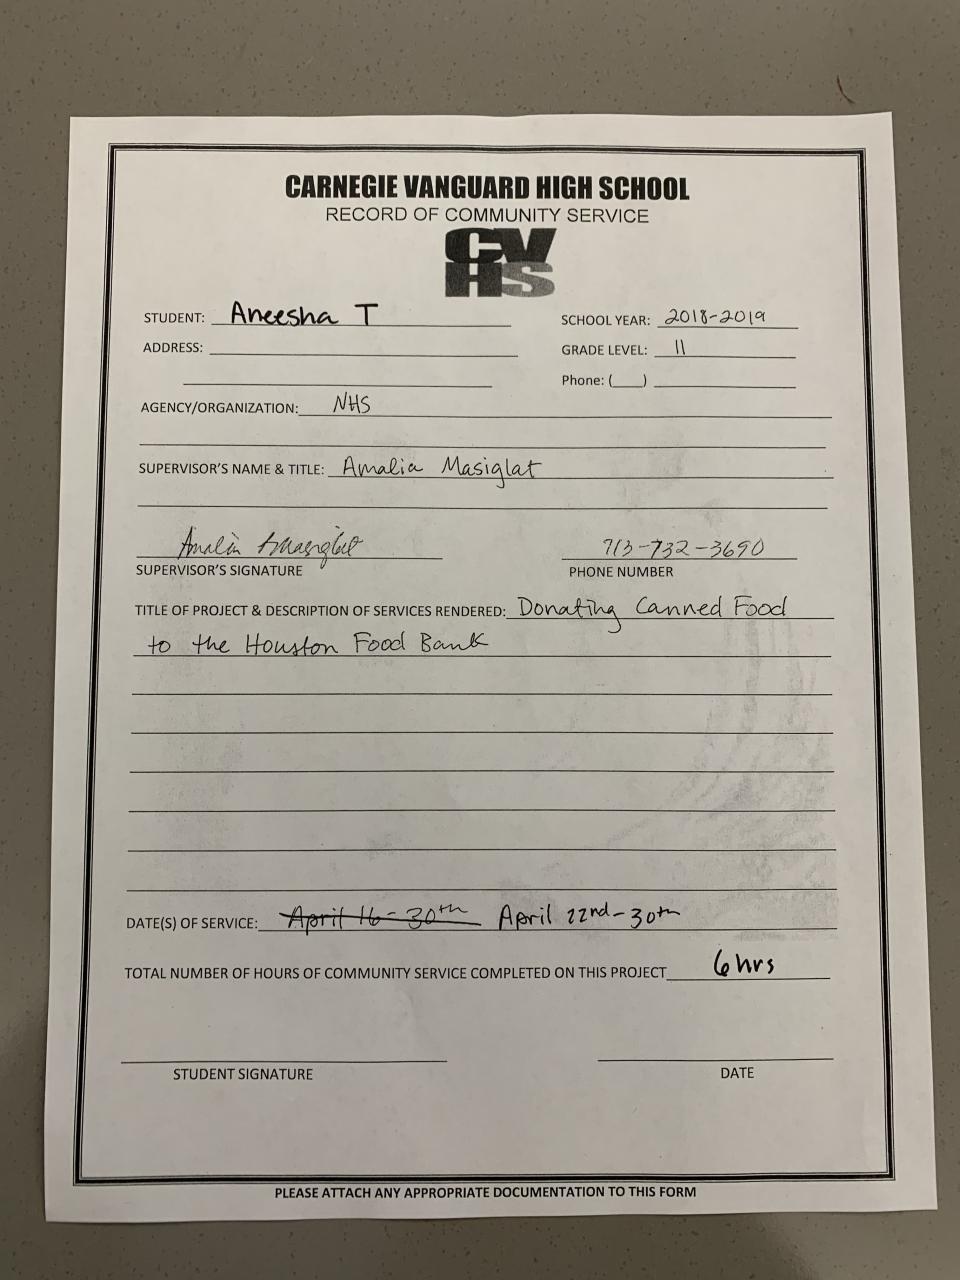 CARNEGIE VANGUARD HIGH SCHOOL
RECORD OF COMMUNITY SERVICE
CV
HS
STUDENT: Aneesha T
SCHOOL YEAR: 2018-2019
ADDRESS:
GRADE LEVEL: 11
Phone: (___)
AGENCY/ORGANIZATION: NHS
SUPERVISOR'S NAME & TITLE: Amalia Masiglat
Amalia Masiglat 713-732-3690
SUPERVISOR'S SIGNATURE PHONE NUMBER
TITLE OF PROJECT & DESCRIPTION OF SERVICES RENDERED: Donating Canned Food
to the Houston Food Bank
DATE(S) OF SERVICE: April 16-30th April 22nd-30th
TOTAL NUMBER OF HOURS OF COMMUNITY SERVICE COMPLETED ON THIS PROJECT 6 hrs
STUDENT SIGNATURE DATE
PLEASE ATTACH ANY APPROPRIATE DOCUMENTATION TO THIS FORM